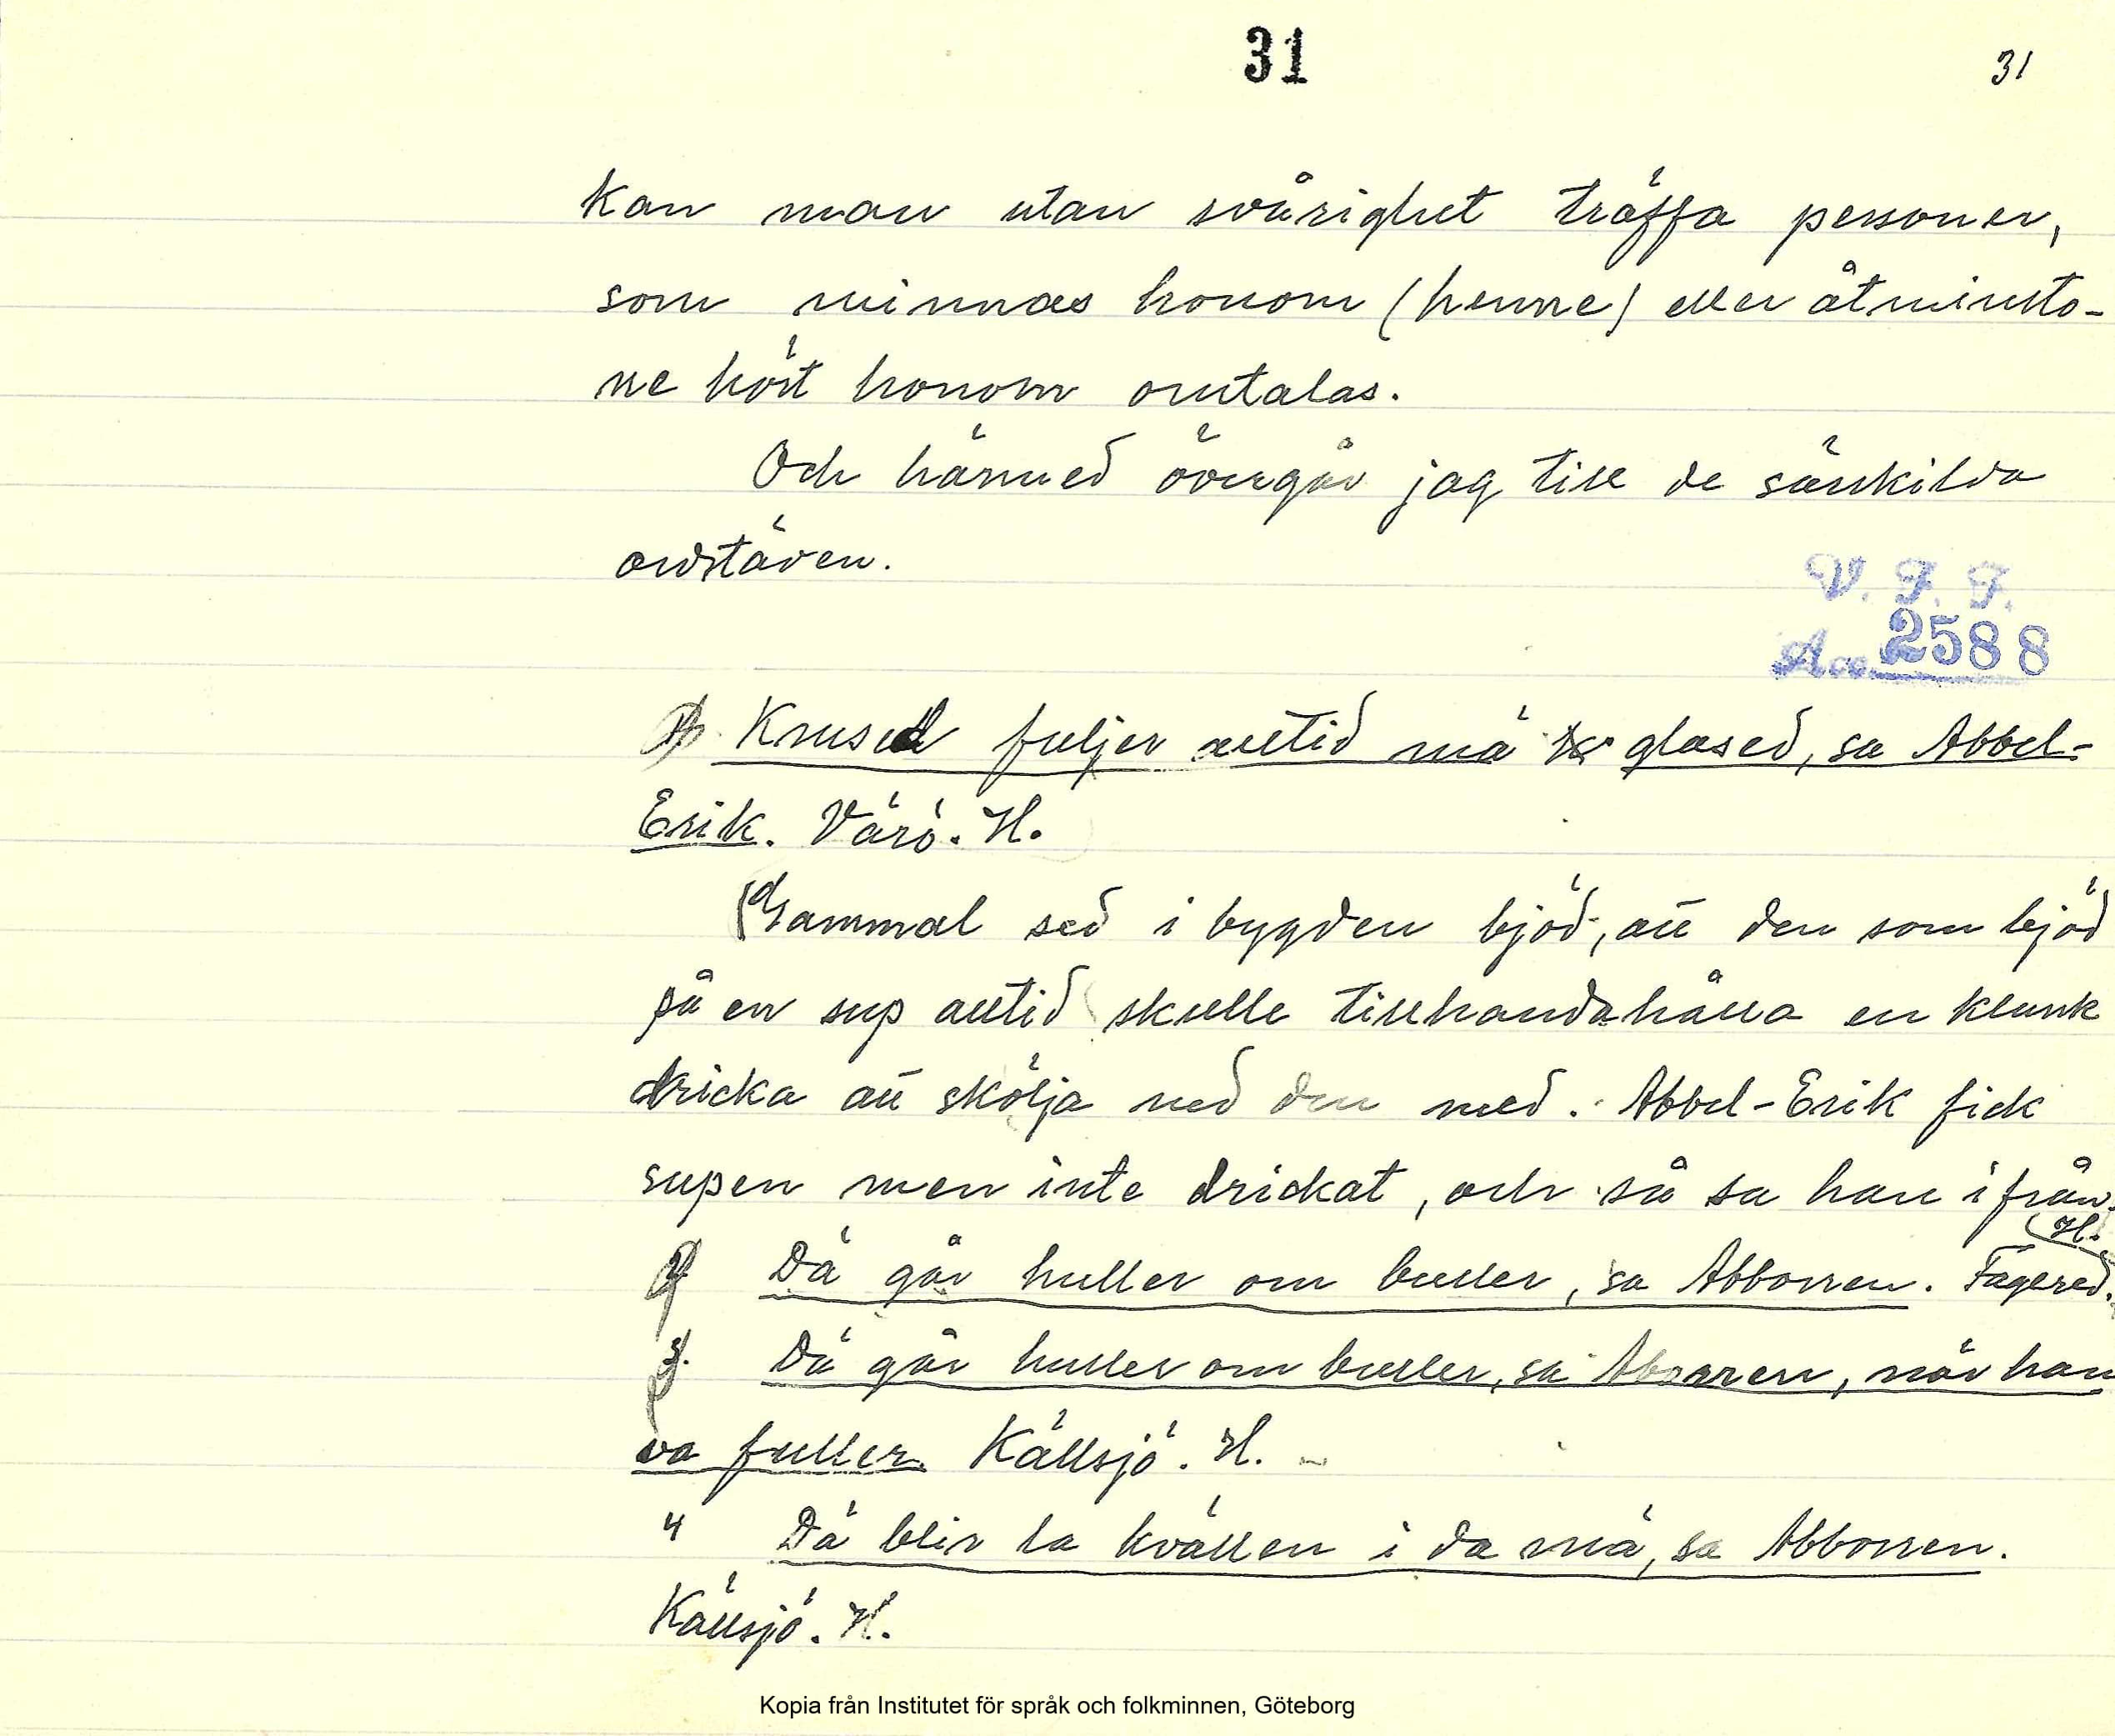 31
31
kan man utan svårighet träffa personer,
som minnas honom (henne) eller åtminsto-
ne hört honom omtalas.
Och härmed övergår jag till de särskilda
ordstäven.
V. F. F.
Acc. 2588
1. Krused fuljer alltid mä glased, sa Abbel-
Erik. Värö. H.
(Gammal sed i bygden bjöd, att den som bjöd
på en sup alltid skulle tillhandahålla en klunk
dricka att skölja ned den med. Abbel-Erik fick
supen men inte drickat, och så sa han ifrån.
2. Dä går huller om buller, sa Abborren. Fagered. H.
3. Dä går huller om buller, sa Aborren, när han
va fuller. Källsjö. H.
4 Dä blir la kvällen i da mä, sa Abborren.
Källsjö. H.
Kopia från Institutet för språk och folkminnen, Göteborg